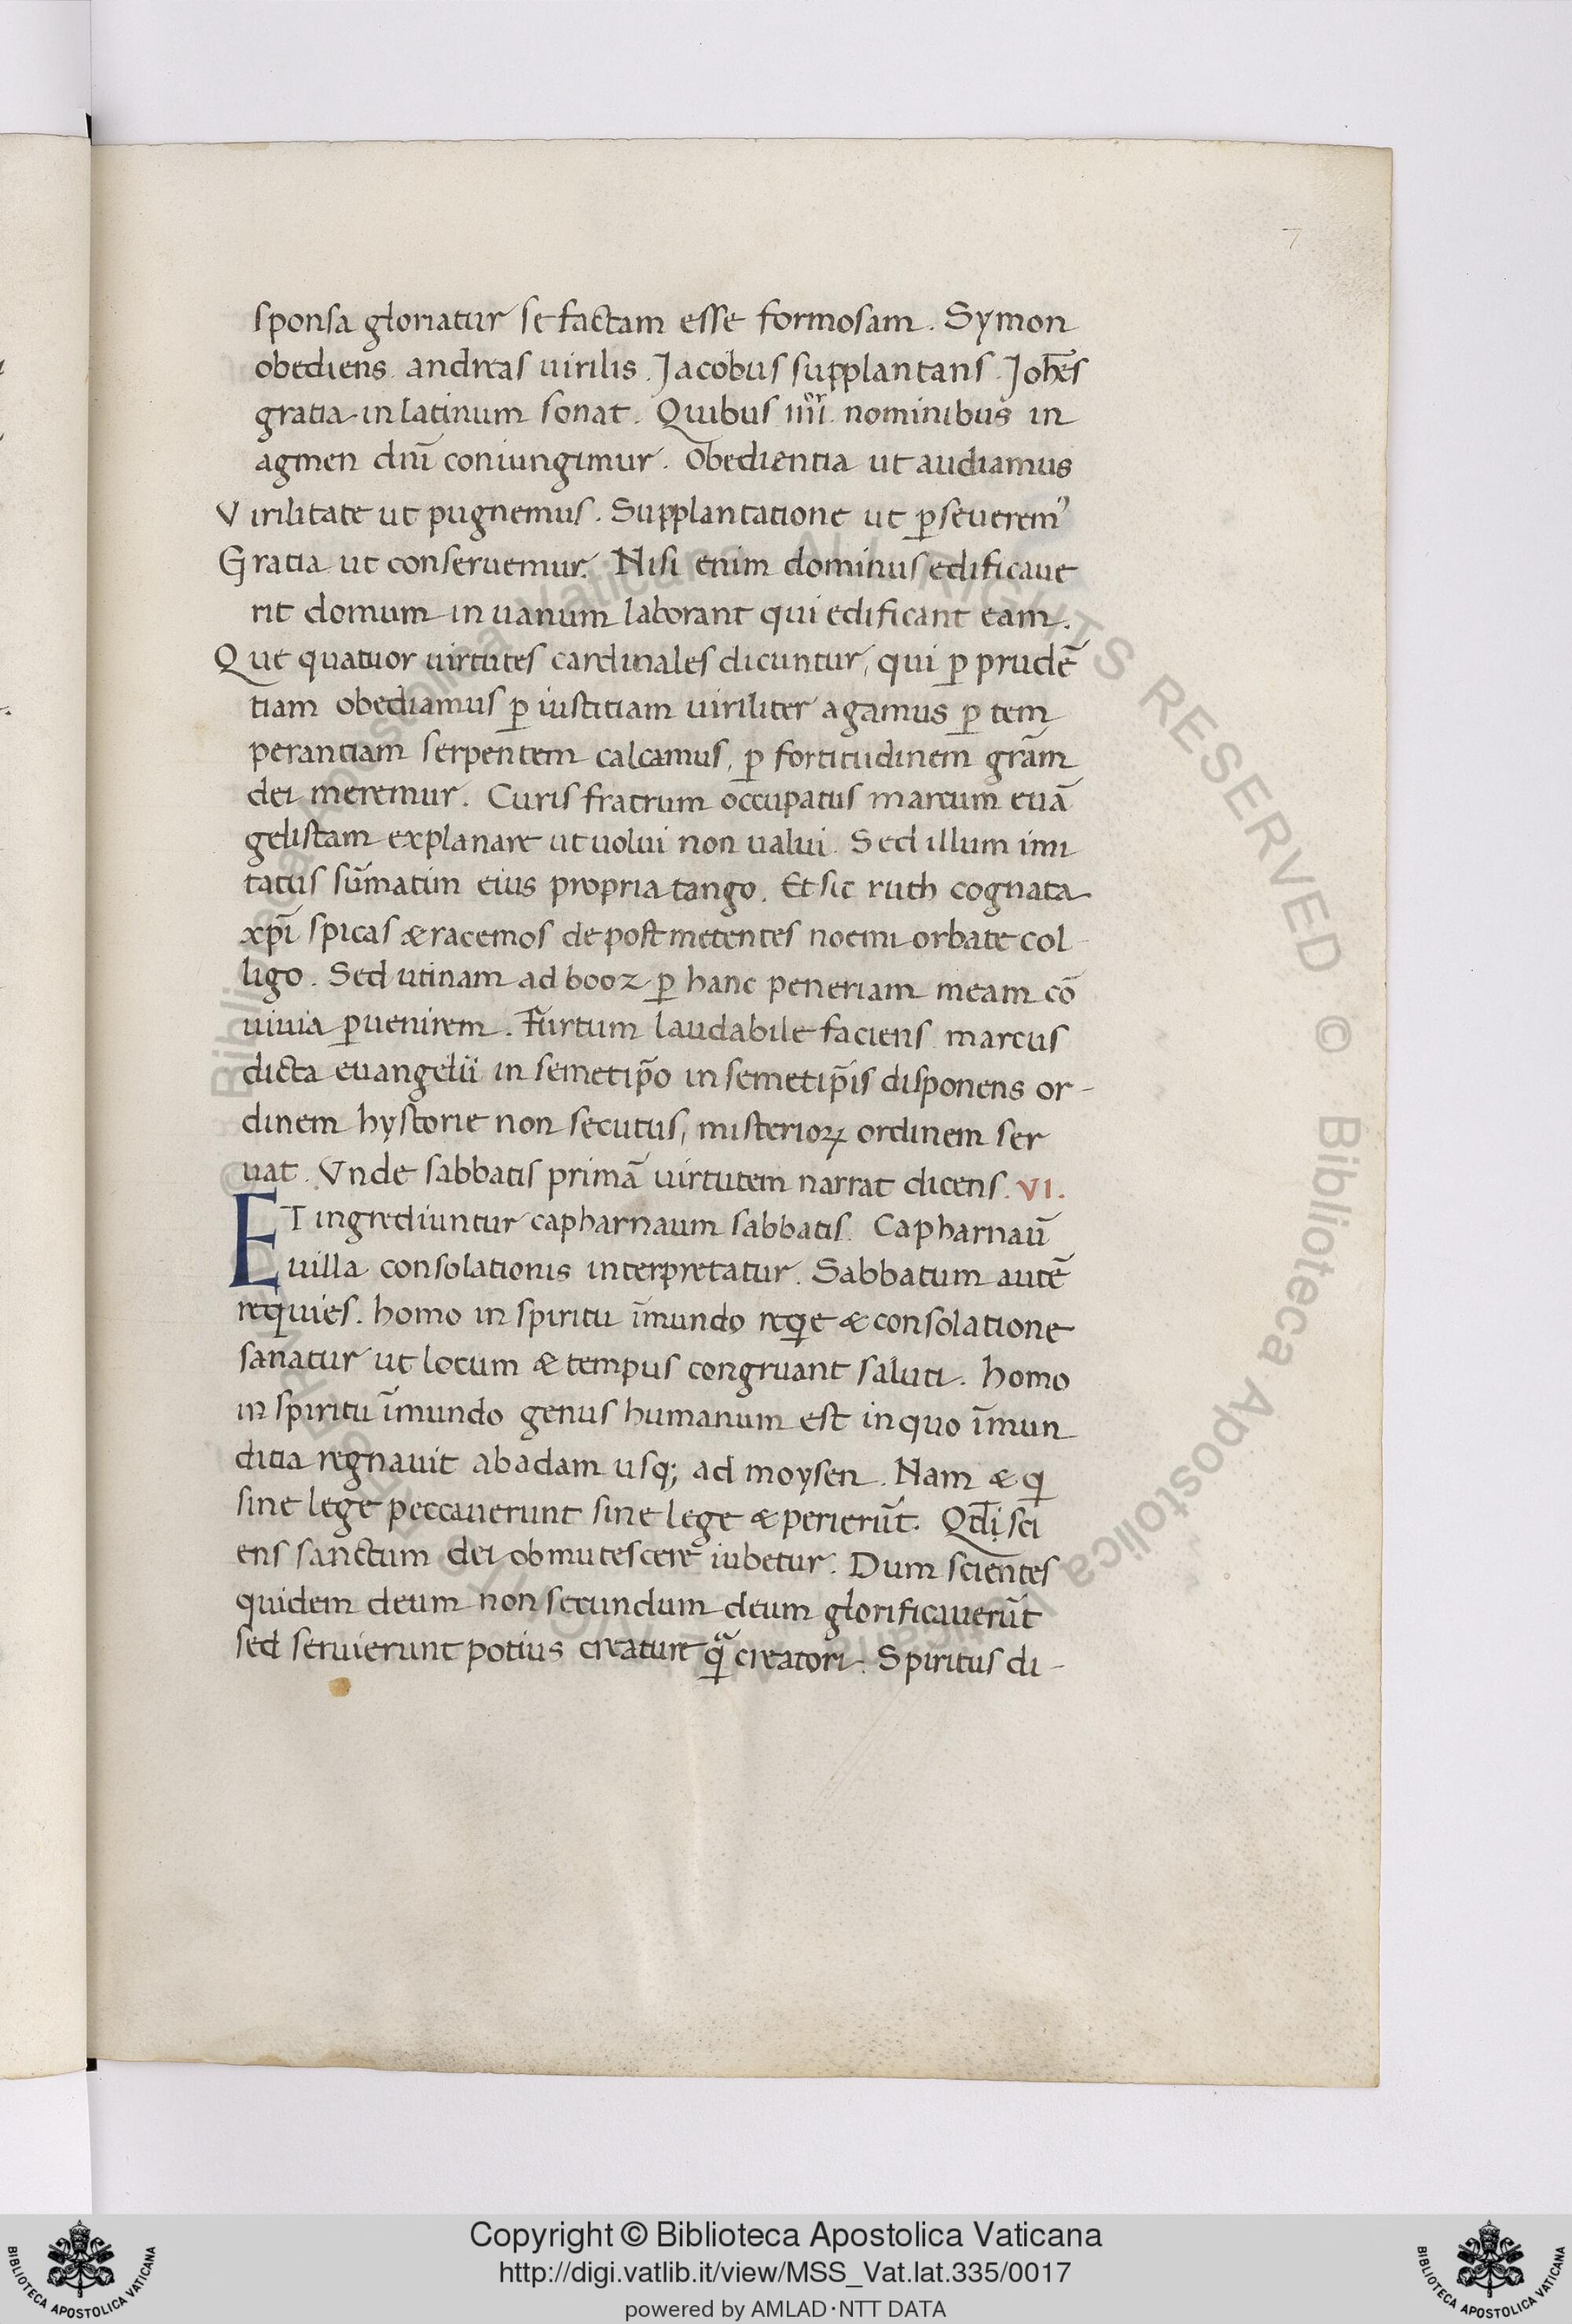 7
sponsa gloriatur se factam esse formosam. Symon
obediens. andreas uirilis. Jacobus supplantans. Joh̄es
gratia in latinum sonat. Quibus iiiior. nominibus in
agmen dnī coniungimur. Obedientia ut audiamus
Virilitate ut pugnemus. Supplantatione ut p̱seuerem⁹
Gratia ut conseruemur. Nisi enim dominus edificaue
rit domum in uanum laborant qui edificant eam.
Que quatuor uirtutes cardinales dicuntur, qui p̱ prudē
tiam obediamus p̱ iustitiam uiriliter agamus p̱ tem
perantiam serpentem calcamus, p̱ fortitudinem grām
dei meremur. Curis fratrum occupatus marcum euā
gelistam explanare ut uolui non ualui. Sed illum imi
tatus sūmatim eius propria tango. Et sic ruth cognata
xpī spicas & racemos de post metentes noemi orbate col
ligo. Sed utinam ad booz p̱ hanc peneriam meam cō
uiuia p̱uenirem. Furtum laudabile faciens marcus
dicta euangelii in semetip̄o in semetip̄is disponens or-
dinem hystorie non secutus, misterioꝝ ordinem ser
uat. Vnde sabbatis primā uirtutem narrat dicens. VI.
ET ingrediuntur capharnaum sabbatis. Capharnaū
uilla consolationis interpretatur. Sabbatum autē
requies. homo in spiritu īmundo reqͥe & consolatione
sanatur ut locum & tempus congruant saluti. homo
in spiritu īmundo genus humanum est in quo īmun
ditia regnauit ab adam usq; ad moysen. Nam & qͥ
sine lege peccauerunt sine lege & perierūt. Qd̄i sci
ens sanctum dei obmutescere iubetur. Dum scientes
quidem deum non secundum deum glorificauerūt
sed seruierunt potius creature qᷓ creatori. Spiritus di-
Copyright © Biblioteca Apostolica Vaticana
http://digi.vatlib.it/view/MSS_Vat.lat.335/0017
powered by AMLAD·NTT DATA